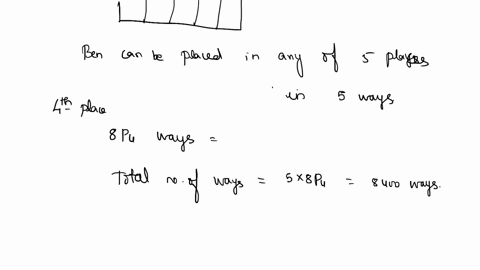 Ben can be placed in any of 5 places
in 5 ways
4th place
8P4 ways =
Total no. of ways = 5×8P4 = 8400 ways.